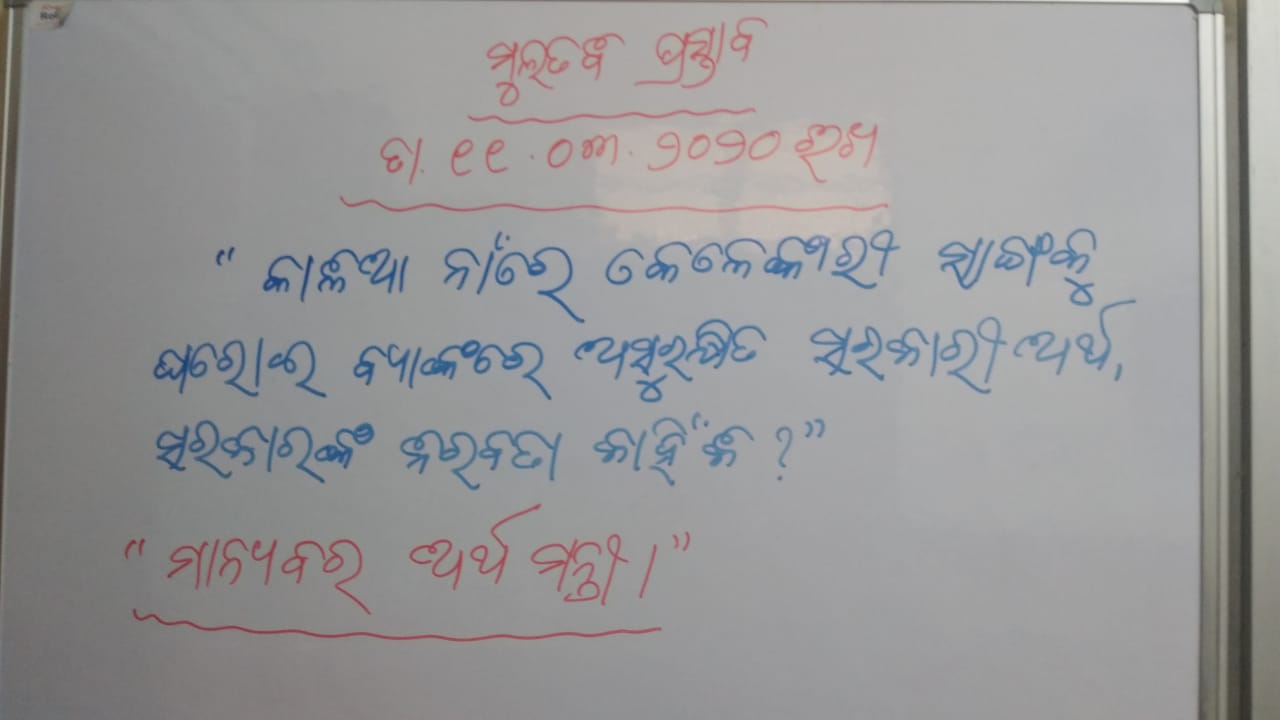 ମୁଲତବୀ ପ୍ରସ୍ତାବ
ତା. ୧୧.୦୩.୨୦୨୦ ରିଖ
" କାଳିଆ ନାଁରେ କେଳେଙ୍କାରୀ ୟାଙ୍କୁ
ଘରୋଇ ବ୍ୟାଙ୍କରେ ଅସୁରକ୍ଷିତ ସରକାରୀ ଅର୍ଥ,
ସରକାରଙ୍କ ନିରବତା କାହିଁକି ?"
" ମାନ୍ୟବର ଅର୍ଥ ମନ୍ତ୍ରୀ।"